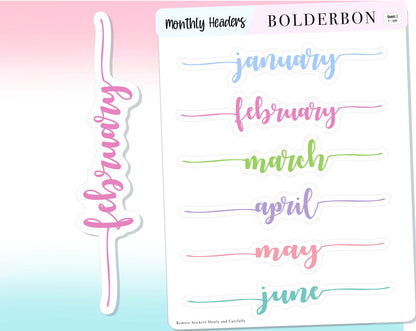 february
Monthly Headers BOLDERBON
january
february
march
april
may
june
Remove Stickers Slowly and Carefully